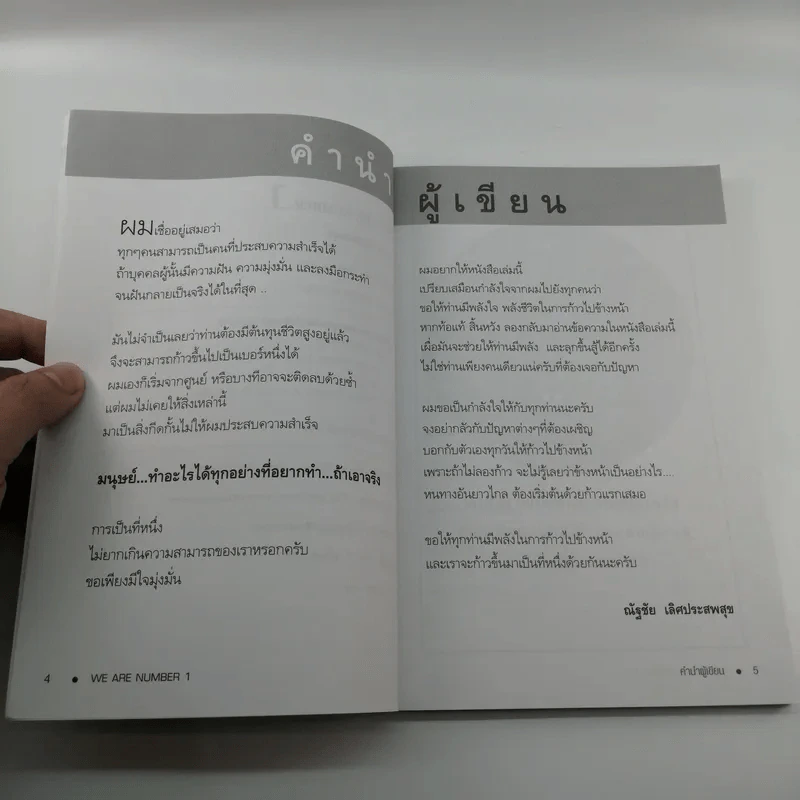 คำนำ
ผมเชื่ออยู่เสมอว่า
ทุกๆคนสามารถเป็นคนที่ประสบความสำเร็จได้
ถ้าบุคคลผู้นั้นมีความฝัน ความมุ่งมั่น และลงมือกระทำ
จนฝันกลายเป็นจริงได้ในที่สุด ..
มันไม่จำเป็นเลยว่าท่านต้องมีต้นทุนชีวิตสูงอยู่แล้ว
จึงจะสามารถก้าวขึ้นไปเป็นเบอร์หนึ่งได้
ผมเองก็เริ่มจากศูนย์ หรือบางทีอาจจะติดลบด้วยซ้ำ
แต่ผมไม่เคยให้สิ่งเหล่านี้
มาเป็นสิ่งกีดกั้นไม่ให้ผมประสบความสำเร็จ
มนุษย์...ทำอะไรได้ทุกอย่างที่อยากทำ...ถ้าเอาจริง
การเป็นที่หนึ่ง
ไม่ยากเกินความสามารถของเราหรอกครับ
ขอเพียงมีใจมุ่งมั่น
4 ● WE ARE NUMBER 1
ผู้เขียน
ผมอยากให้หนังสือเล่มนี้
เปรียบเสมือนกำลังใจจากผมไปยังทุกคนว่า
ขอให้ท่านมีพลังใจ พลังชีวิตในการก้าวไปข้างหน้า
หากท้อแท้ สิ้นหวัง ลองกลับมาอ่านข้อความในหนังสือเล่มนี้
เผื่อมันจะช่วยให้ท่านมีพลัง และลุกขึ้นสู้ได้อีกครั้ง
ไม่ใช่ท่านเพียงคนเดียวแน่ครับที่ต้องเจอกับปัญหา
ผมขอเป็นกำลังใจให้กับทุกท่านนะครับ
จงอย่ากลัวกับปัญหาต่างๆที่ต้องเผชิญ
บอกกับตัวเองทุกวันให้ก้าวไปข้างหน้า
เพราะถ้าไม่ลองก้าว จะไม่รู้เลยว่าข้างหน้าเป็นอย่างไร....
หนทางอันยาวไกล ต้องเริ่มต้นด้วยก้าวแรกเสมอ
ขอให้ทุกท่านมีพลังในการก้าวไปข้างหน้า
และเราจะก้าวขึ้นมาเป็นที่หนึ่งด้วยกันนะครับ
ณัฐชัย เลิศประสพสุข
คำนำผู้เขียน ● 5